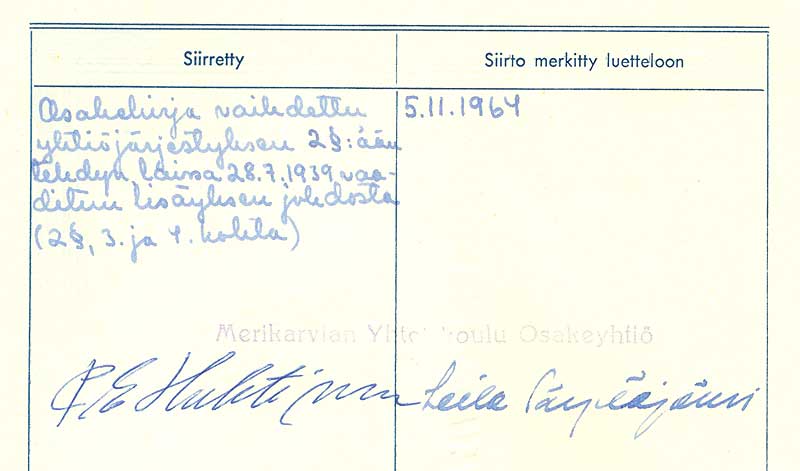 Siirretty
Siirto merkitty luetteloon
Osakekirja vaihdettu
yhtiöjärjestyksen 2§:ään
tehdyn laissa 28.7.1939 vaa-
ditun lisäyksen johdosta
(2§, 3. ja 4. kohta)
5.11.1964
Merikarvian Yhteiskoulu Osakeyhtiö
Leila